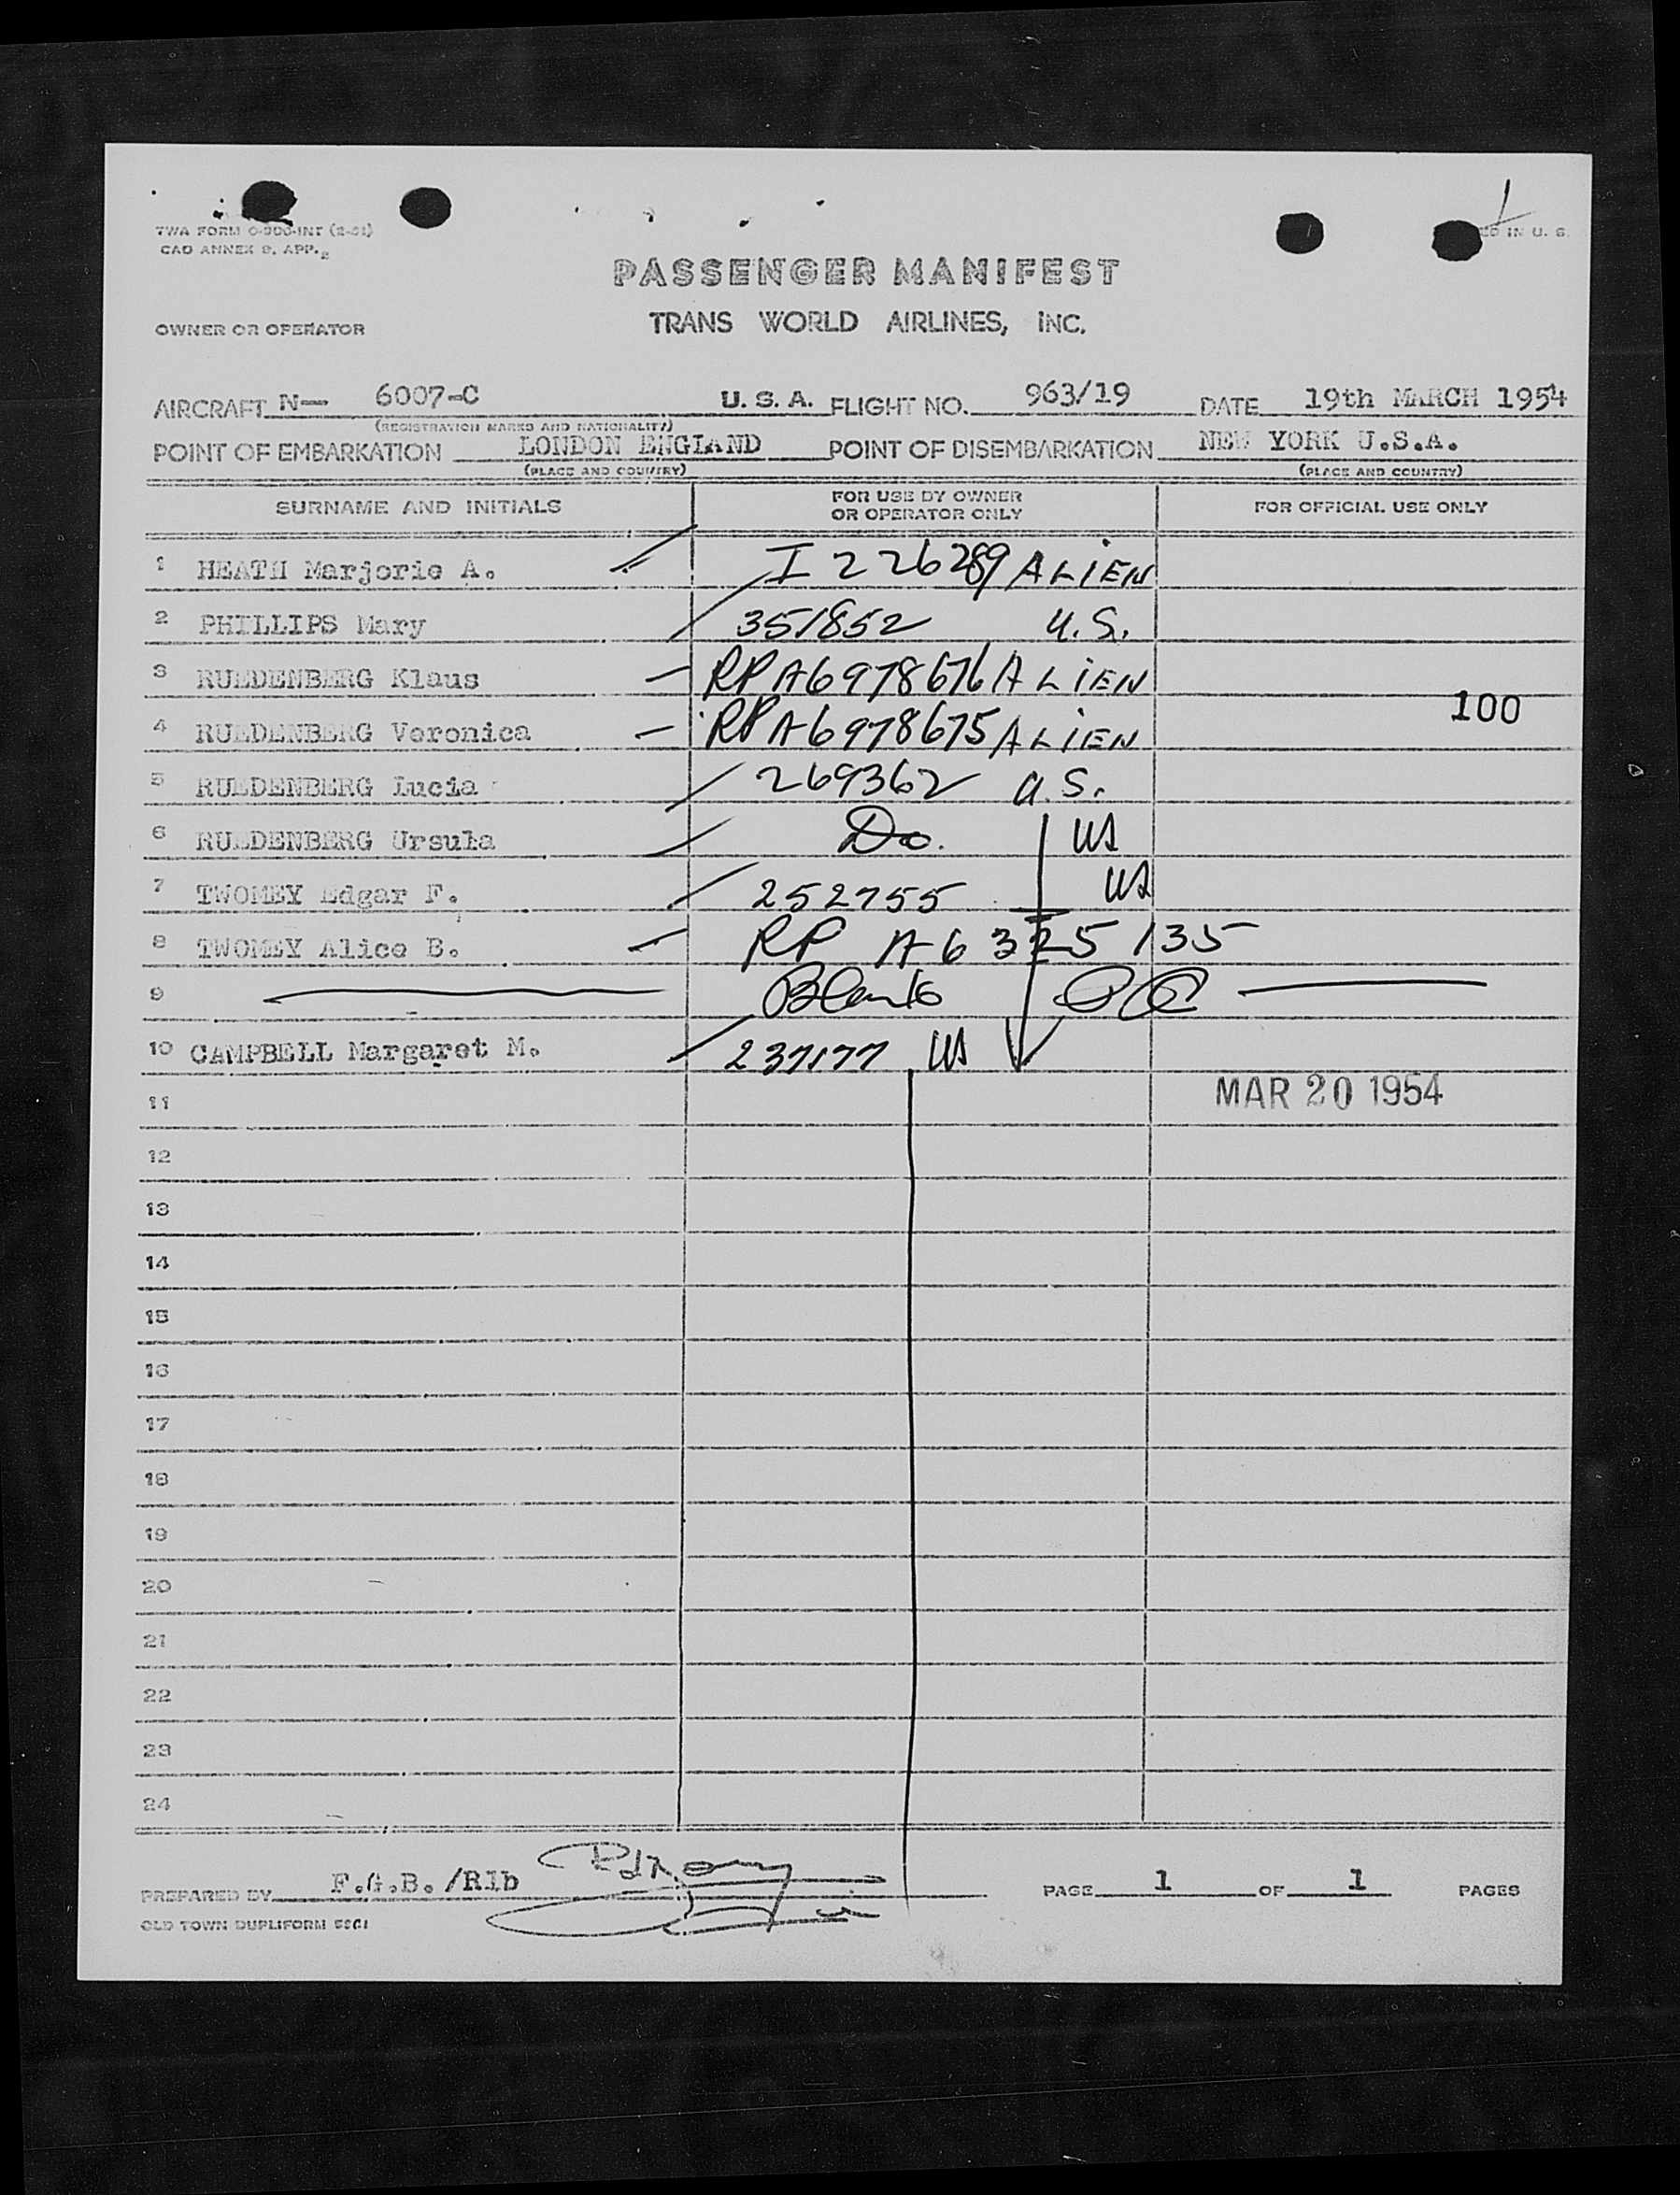 TWA FORM O-900-INT (2-51)
CAO ANNEX 9, APP. 2
ED IN U. S.
PASSENGER MANIFEST
TRANS WORLD AIRLINES, INC.
OWNER OR OPERATOR
AIRCRAFT N— 6007-C U. S. A. FLIGHT NO. 963/19 DATE 19th MARCH 1954
(REGISTRATION MARKS AND NATIONALITY)
POINT OF EMBARKATION LONDON ENGLAND POINT OF DISEMBARKATION NEW YORK U.S.A.
(PLACE AND COUNTRY) (PLACE AND COUNTRY)
SURNAME AND INITIALS FOR USE BY OWNER OR OPERATOR ONLY FOR OFFICIAL USE ONLY
1 HEATH Marjorie A. I 226289 ALIEN
2 PHILLIPS Mary 351852 U.S.
3 RUEDENBERG Klaus RP A6978676 ALIEN
100
4 RUEDENBERG Veronica RP A6978675 ALIEN
5 RUEDENBERG Lucia 269362 U.S.
6 RUEDENBERG Ursula Do. US
7 TWOMEY Edgar F. 252755 US
8 TWOMEY Alice B. RP A6325135
9 Blank
10 CAMPBELL Margaret M. 237177 US
MAR 20 1954
11
12
13
14
15
16
17
18
19
20
21
22
23
24
PREPARED BY F.G.B./RIb PAGE 1 OF 1 PAGES
OLD TOWN DUPLIFORM